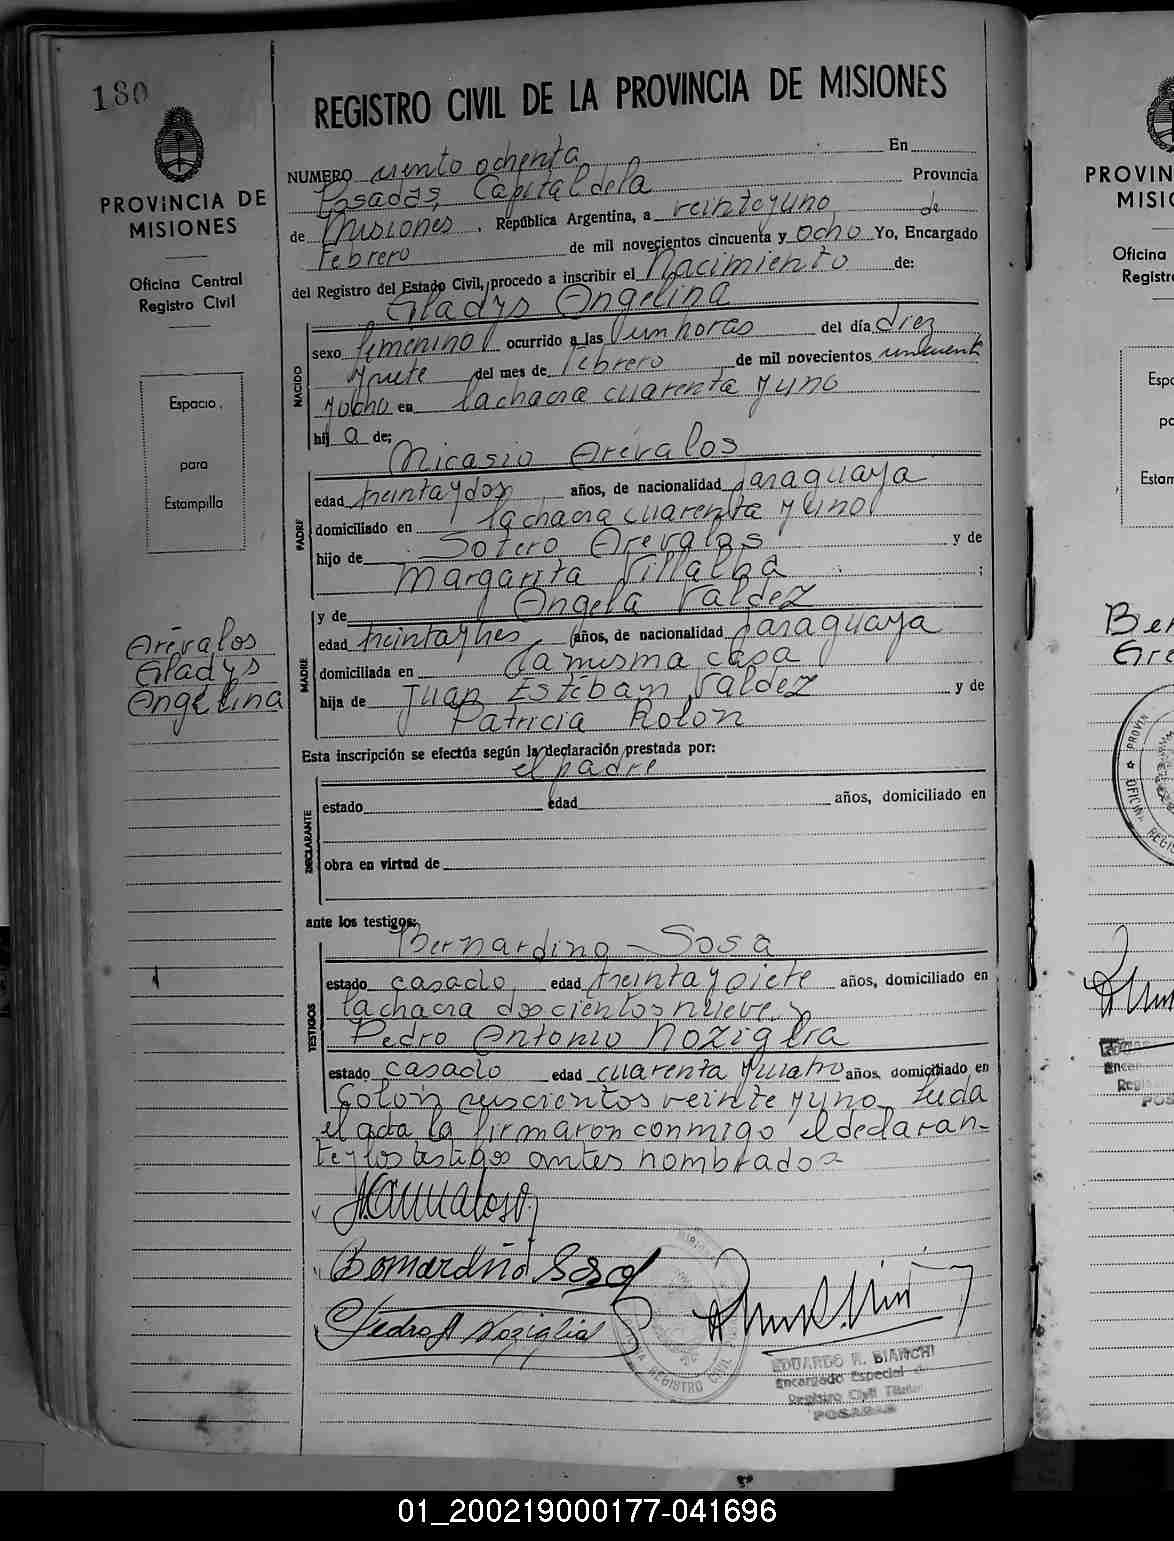 180
PROVINCIA DE
MISIONES
Oficina Central
Registro Civil
Espacio
para
Estampilla
Arévalos
Gladys
Angélina
REGISTRO CIVIL DE LA PROVINCIA DE MISIONES
NUMERO ciento ochenta En
Posadas, Capital de la Provincia
de Misiones, República Argentina, a veintoyuno de
Febrero de mil novecientos cincuenta y ocho Yo, Encargado
del Registro del Estado Civil, procedo a inscribir el Nacimiento de:
Gladys Angélina
NACIDO
sexo femenino ocurrido a las horas del día diez
y siete del mes de febrero de mil novecientos cincuenta
y ocho en la chacra cuarenta y uno
hij a de:
Nicasio Arévalos
PADRE
edad treinta y dos años, de nacionalidad paraguaya
domiciliado en la chacra cuarenta y uno
hijo de Sotero Arévalos y de
Margarita Villalba ;
y de Angela Valdéz
MADRE
edad treinta y tres años, de nacionalidad paraguaya
domiciliada en la misma casa
hija de Juan Estéban Valdéz y de
Patricia Rolón
Esta inscripción se efectúa según la declaración prestada por:
el padre
DECLARANTE
estado edad años, domiciliado en
obra en virtud de
ante los testigos:
Bernardino Sosa
TESTIGOS
estado casado edad treinta y siete años, domiciliado en
la chacra doscientos nueve y
Pedro Antonio Noziglia
estado casado edad cuarenta y cuatro años, domiciliado en
Colón seiscientos veinte y uno. Leida
el acta la firmaron conmigo el declaran-
te y los testigos antes nombrados
Bernardino Sosa
Pedro A Noziglia
REGISTRO CIVIL
EDUARDO R. BIANCHI
Encargado Especial
Registro Civil Titular
POSADAS
PROVIN
MISIO
Oficina
Registr
Espa
pa
Estam
Ber
Are
PROVIN
OFICINA
REGIS
EDUAR
Encar
Regis
POS
01_200219000177-041696